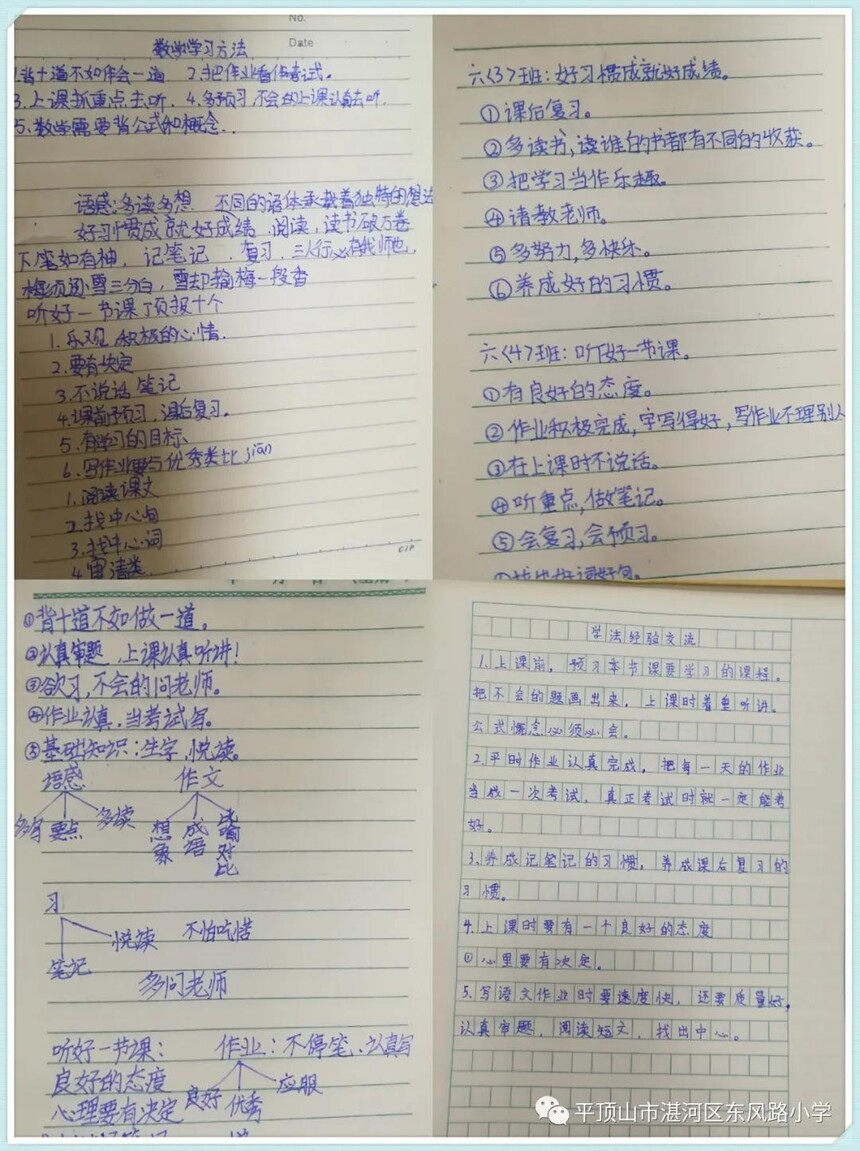 No.
Date
数学学习方法
1.背十道不如体会一道 2.把作业看作考试。
3.上课抓重点去听. 4.多预习,不会的上课认真去听.
5.数学需要背公式和概念.
语感:多读多想 不同的语体承载着独特的想法
好习惯成就好成绩.阅读,读书破万卷
下笔如有神, 记笔记 .复习,三人行必有我师也,
梅须逊雪三分白,雪却输梅一段香
听好一节课顶报十个
1.乐观,积极的心情.
2.要有决定
3.不说话 笔记
4.课前预习,课后复习。
5.有学习的目标
6.写作业要与优秀类比jiān
1.阅读课文
2.找中心句
3.找中心词
4.审清类
六<3>班:好习惯成就好成绩。
①课后复习。
②多读书,读谁的书都有不同的收获。
③把学习当作乐趣。
④请教老师。
⑤多努力,多快乐。
⑥养成好的习惯。
六<4>班:听好一节课。
①有良好的态度。
②作业积极完成,字写得好,写作业不理别人
③在上课时不说话。
④听重点,做笔记。
⑤会复习,会预习。
找出好词好句。
①背十道不如做一道。
②认真审题,上课认真听讲!
③欲习,不会的问老师。
④作业认真,当考试写。
⑤基础知识:生字,悦读。
语感 作文
多写 要点 多读 想象 成语 比喻 对比
习
悦读 不怕吃苦
笔记
多问老师
听好一节课: 作业:不停笔、认真写
良好的态度 良好 优秀 应服
心理要有决定
学法经验交流
1.上课前,预习本节课要学习的课程。
把不会的题画出来,上课时着重听讲。
公式概念必须必会。
2.平时作业认真完成,把每一天的作业
当成一次考试,真正考试时就一定能考
好。
3.养成记笔记的习惯,养成课后复习的
习惯。
4.上课时要有一个良好的态度
①心里要有决定。
5.写语文作业时要速度快,还要质量好,
认真审题,阅读短文,找出中心。
平顶山市湛河区东风路小学